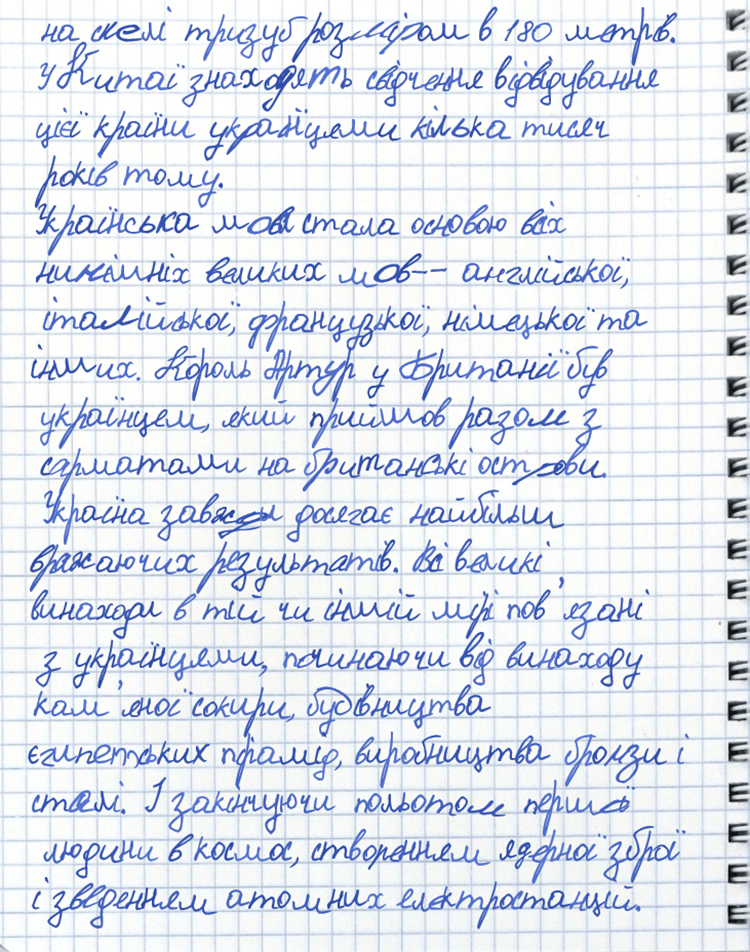 на скелі тризуб розміром в 180 метрів.
У Китаї знаходять свідчення відвідування
цієї країни українцями кілька тисяч
років тому.
Українська мова стала основою всіх
нинішніх великих мов-- англійської,
італійської, французької, німецької та
інших. Король Артур у Британії був
українцем, який прийшов разом з
сарматами на британські острови.
Україна завжди досягає найбільш
вражаючих результатів. Всі великі
винаходи в тій чи іншій мірі пов'язані
з українцями, починаючи від винаходу
кам'яної сокири, будівництва
єгипетських пірамід, виробництва бронзи і
сталі. І закінчуючи польотом першої
людини в космос, створенням ядерної зброї
і зведенням атомних електростанцій.